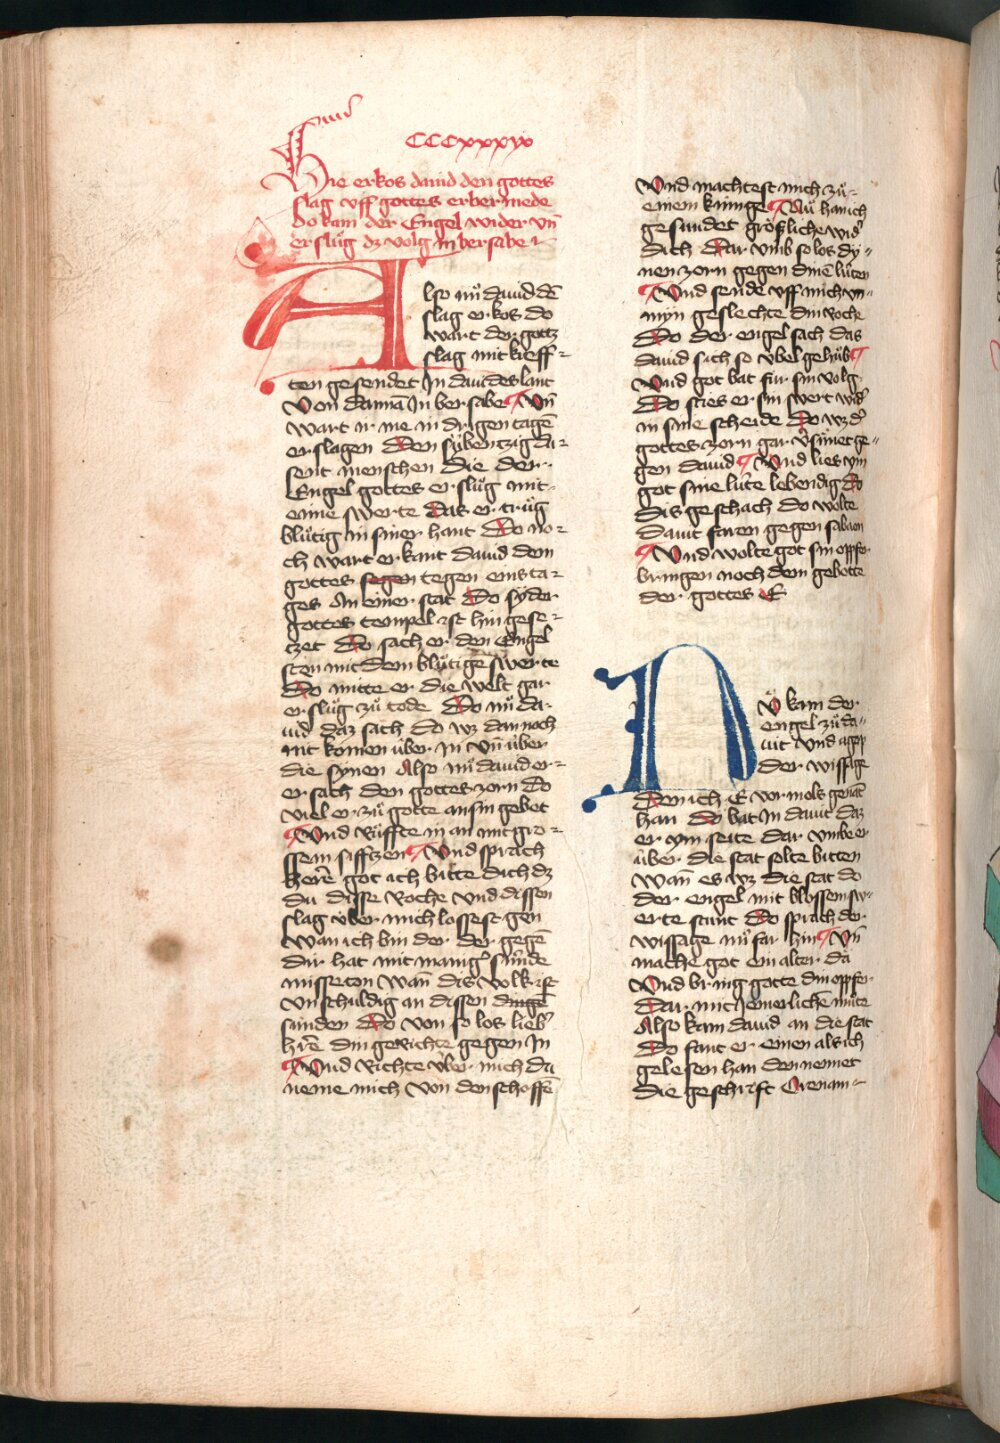 CCCxxxix
Hie erkos dauid den gottes
slag vff gottes erbermede
Do kam der Engel wider vn̄
erslůg dz volg in bersabe
Also nů dauid dē
slag erkos do
wart der gottz
slag mit kreff-
ten gesendet In dauides lant
Von dannā In bersabe Vn̄
wart ir me in drigen tagē
erslagen Den sybentzig du-
sent menschen die der
Engel gottes erslůg mit
eime swerte Das er trůg
blůtig in siner hant Do no-
ch wart erkant dauid dem
gottes segen tegen eins ta-
ges An einer stat Do syder
gottes tempel ist hin gese-
tzet Do sach er den Engel
ston mit dem blůtigē swerte
Do mitte er die welt gar
erslůg zů tode Do nů da-
uid daz sach do wz dannoch
nit komen über In vn̄ über
die synen Also nů dauid er-
ersach den gottes zorn do
viel er zů gotte an sin gebet
Vnd Růffte in an mit gro-
ssem siffzen Vnd sprach
Herre got ich bitte dich dz
du disse Roche vnd dissen
slag vber mich lossest gen
Wan ich bin der der gegē
dir hat mit manig' sünde
misseton Wan̄ dis volk ist
vnschuldig an dissen dinge
sünden Do von so los lieb'
h're din gerichte gegen In
Vnd Richte über mich du
neme mich von den schoffē
Vnd machtest mich zů
einem künige Nů han ich
gesundet gröfliche wid'
dich Dar vmb so los dy-
nen zorn gegen dinē lüten
Vnd sende vff mich vn-
myn geslechte din Roche
Do der engel sach das
dauid sich so vbel gehůb
Vnd got bat für sin volg
Do sties er sin swert wid'
in sine scheide Do wz d'
gottes zorn gar v'sünet ge-
gen dauid Vnd lies vm
got sine lüte lebendig Do
dis geschach do wolte
Dauit faren gegen sabaon
Vnd wolte got sin opffer
bringen noch dem gebotte
der gottes E
Nů kam der
engel zů da-
uit vnd agap
der wissage
Den ich E vormols genāt
han Do bat In dauit daz
er ym seite dar vmbe er
über die stat solte bitten
Wan̄ es wz die stat do
der engel mit blossem sw-
erte stunt Do sprach der
wissage nů far hin Vn̄
mache got ein alter da
Vnd bring gotte din opffer
Dar mit Jemerlichē můte
Also kam dauid an die stat
Do fant er einen als ich
gelesen han den nennet
die geschrift Ornam-